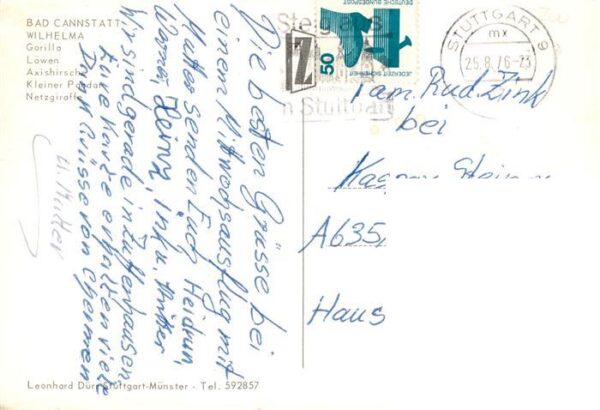 BAD CANNSTATT
WILHELMA
Gorilla
Löwen
Axishirsche
Kleiner Panda
Netzgiraffe
Die besten Grüsse bei
einem Mittwochsausflug mit
Mutter sendet Euch Heidrun,
Werner, Heinz, Ink u. Mutter
Wir sind gerade in Zuffenhausen
Eure Karte erhalten viele
Dank Grüsse von
u. Mutter
Leonhard Dürr, Stuttgart-Münster - Tel. 592857
in Stuttgart
50
DEUTSCHE BUNDESPOST
JEDERZEIT SICHERHEIT
STUTTGART 9
mx
25.8.76-23
Fam. Rud. Zink
bei
A635
Haus